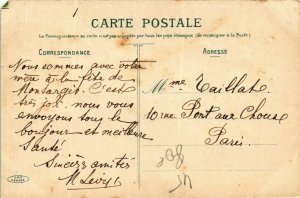 CARTE POSTALE
La Correspondance au recto n'est pas acceptée par tous les pays étrangers (Se renseigner à la Poste)
CORRESPONDANCE
ADRESSE
Nous sommes avec votre
mère à la fête de
Montsargis. C'est
très joi. nous vous
envoyons tous le
boujour et meilleure
Santé
Sincères amitiés
M Levy
Mme Taillat
10 rue Pont aux Choux
Paris